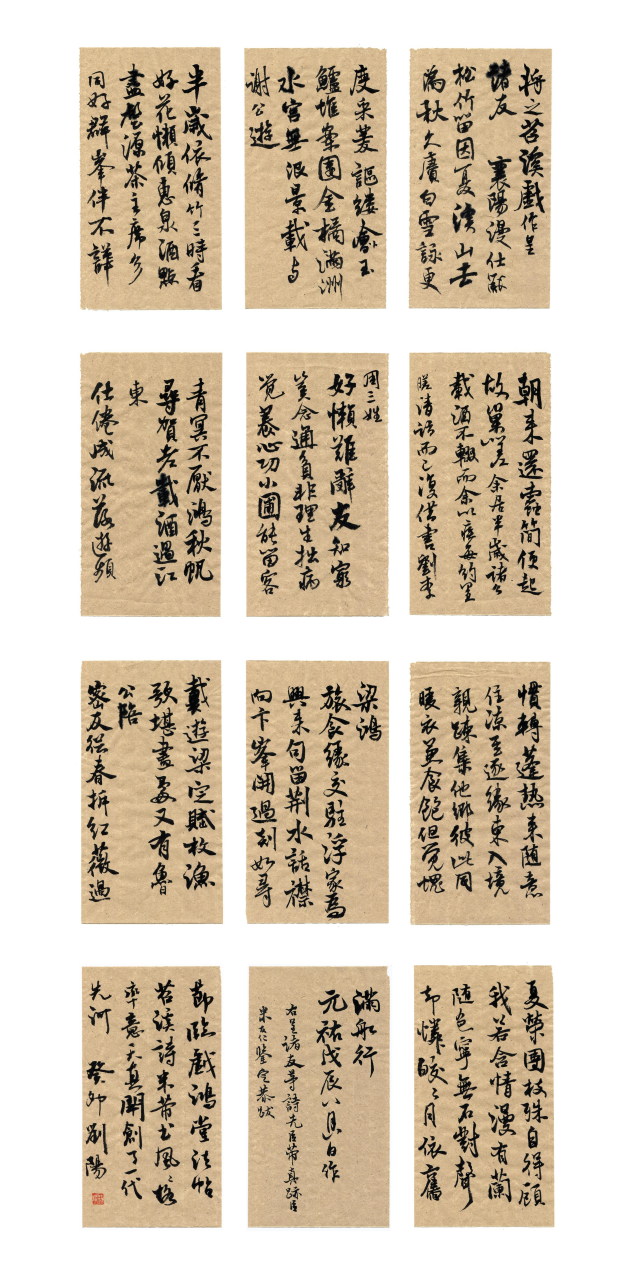 将之苕溪戲作呈
諸友 襄陽漫仕黻
松竹留因夏溪山去
為秋久賡白雪詠更
度采菱謳縷會玉
鱸堆案團金橘滿洲
水宮無限景載与
謝公遊
半歲依脩竹三時看
好花懶傾惠泉酒點
盡壑源茶主席多
同好群峯伴不譁
朝来還蠹簡便起
故巢嗟余居半歲諸公
載酒不輟而余以疾每約置
膳清話而已復借書劉李
周三姓
好懶難辭友知窮
豈念通貧非理生拙病
覺養心功小圃能留客
青冥不厭鴻秋帆
尋賀老載酒過江
東
仕倦成流落遊頻
慣轉蓬熱来随意
住凉至逐緣東入境
親疎集他鄉彼此同
暖衣兼食飽但覺愧
梁鴻
旅食緣交駐浮家為
興来句留荆水話襟
向卞峯開過剡如尋
戴遊梁定賦枚漁
歌堪畫處又有魯
公陪
密友從春拆紅薇過
夏榮團枝殊自得顧
我若含情漫有蘭
随色寧無石對聲
却憐皎々月依舊
滿船行
元祐戊辰八月八日作
右呈諸友等詩先臣芾真跡臣
米友仁鑒定恭跋
節臨戲鴻堂法帖
苕溪詩米芾書風格
率意天真開創了一代
先河 癸卯劉陽